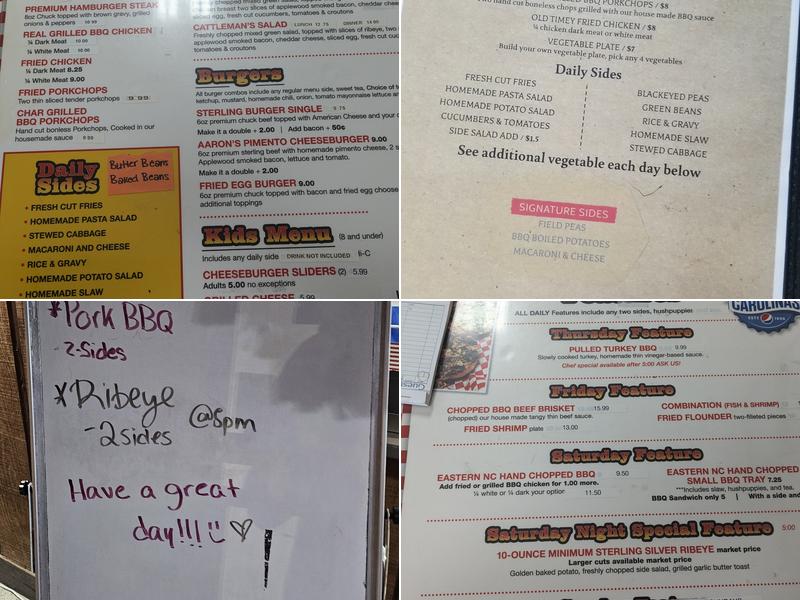 PREMIUM HAMBURGER STEAK
8oz Chuck topped with brown gravy, grilled
onions & peppers 10.99
REAL GRILLED BBQ CHICKEN
¼ Dark Meat 10.00
¼ White Meat
FRIED CHICKEN
¼ Dark Meat 8.25
¼ White Meat 9.00
FRIED PORKCHOPS
Two thin sliced tender porkchops 9.99
CHAR GRILLED
BBQ PORKCHOPS
Hand cut bonless Porkchops, Cooked in our
housemade sauce
Daily
Sides
Butter Beans
Baked Beans
• FRESH CUT FRIES
• HOMEMADE PASTA SALAD
• STEWED CABBAGE
• MACARONI AND CHEESE
• RICE & GRAVY
• HOMEMADE POTATO SALAD
• HOMEMADE SLAW
breast two slices of applewood smoked bacon,
tomatoes & croutons
CATTLEMAN'S SALAD LUNCH 12.75 DINNER 14.99
Freshly chopped mixed green salad, topped with slices of ribeye, two
applewood smoked bacon, cheddar cheese, sliced egg, fresh cut
tomatoes & croutons
Burgers
All burger combos include any regular menu side, sweet tea, Choice of
ketchup, mustard, homemade chili, onion, tomato mayonnaise
STERLING BURGER SINGLE 9.75
6oz premium chuck beef topped with American Cheese and your
Make it a double + 2.00 | Add bacon + 50¢
AARON'S PIMENTO CHEESEBURGER 9.00
6oz premium sterling beef with homemade pimento cheese, 2
Applewood smoked bacon, lettuce and tomato.
Make it a double + 2.00
FRIED EGG BURGER 9.00
6oz premium chuck topped with bacon and fried egg choose
additional toppings
Kids Menu (8 and under)
Includes any daily side DRINK NOT INCLUDED
CHEESEBURGER SLIDERS (2) 5.99
Adults 5.00 no exceptions
GRILLED CHEESE 5.99
BBQ PORKCHOPS / $8
hand cut boneless chops grilled with our house made BBQ sauce
OLD TIMEY FRIED CHICKEN / $8
¼ chicken dark meat or white meat
VEGETABLE PLATE / $7
Build your own vegetable plate, pick any 4 vegetables
Daily Sides
FRESH CUT FRIES
HOMEMADE PASTA SALAD
HOMEMADE POTATO SALAD
CUCUMBERS & TOMATOES
SIDE SALAD ADD / $1.5
BLACKEYED PEAS
GREEN BEANS
RICE & GRAVY
HOMEMADE SLAW
STEWED CABBAGE
See additional vegetable each day below
SIGNATURE SIDES
FIELD PEAS
BBQ BOILED POTATOES
MACARONI & CHEESE
*Pork BBQ
-2-Sides
*Ribeye @5pm
-2 sides
Have a great
day!!!
ALL DAILY Features include any two sides, hushpuppies
CAROLINAS
Thursday Feature
PULLED TURKEY BBQ 9.99
Slowly cooked turkey, homemade thin vinegar-based sauce.
Chef special available after 5:00 ASK US!
Friday Feature
CHOPPED BBQ BEEF BRISKET 15.99
(chopped) our house made tangy thin beef sauce.
FRIED SHRIMP plate 13.00
COMBINATION (FISH & SHRIMP)
FRIED FLOUNDER two-filleted pieces
Saturday Feature
EASTERN NC HAND CHOPPED BBQ 9.50
Add fried or grilled BBQ chicken for 1.00 more.
¼ white or ¼ dark your option 11.50
EASTERN NC HAND CHOPPED
SMALL BBQ TRAY 7.25
***Includes slaw, hushpuppies, and tea.
BBQ Sandwich only 5 | With a side and
Saturday Night Special Feature 5:00
10-OUNCE MINIMUM STERLING SILVER RIBEYE market price
Larger cuts available market price
Golden baked potato, freshly chopped side salad, grilled garlic butter toast